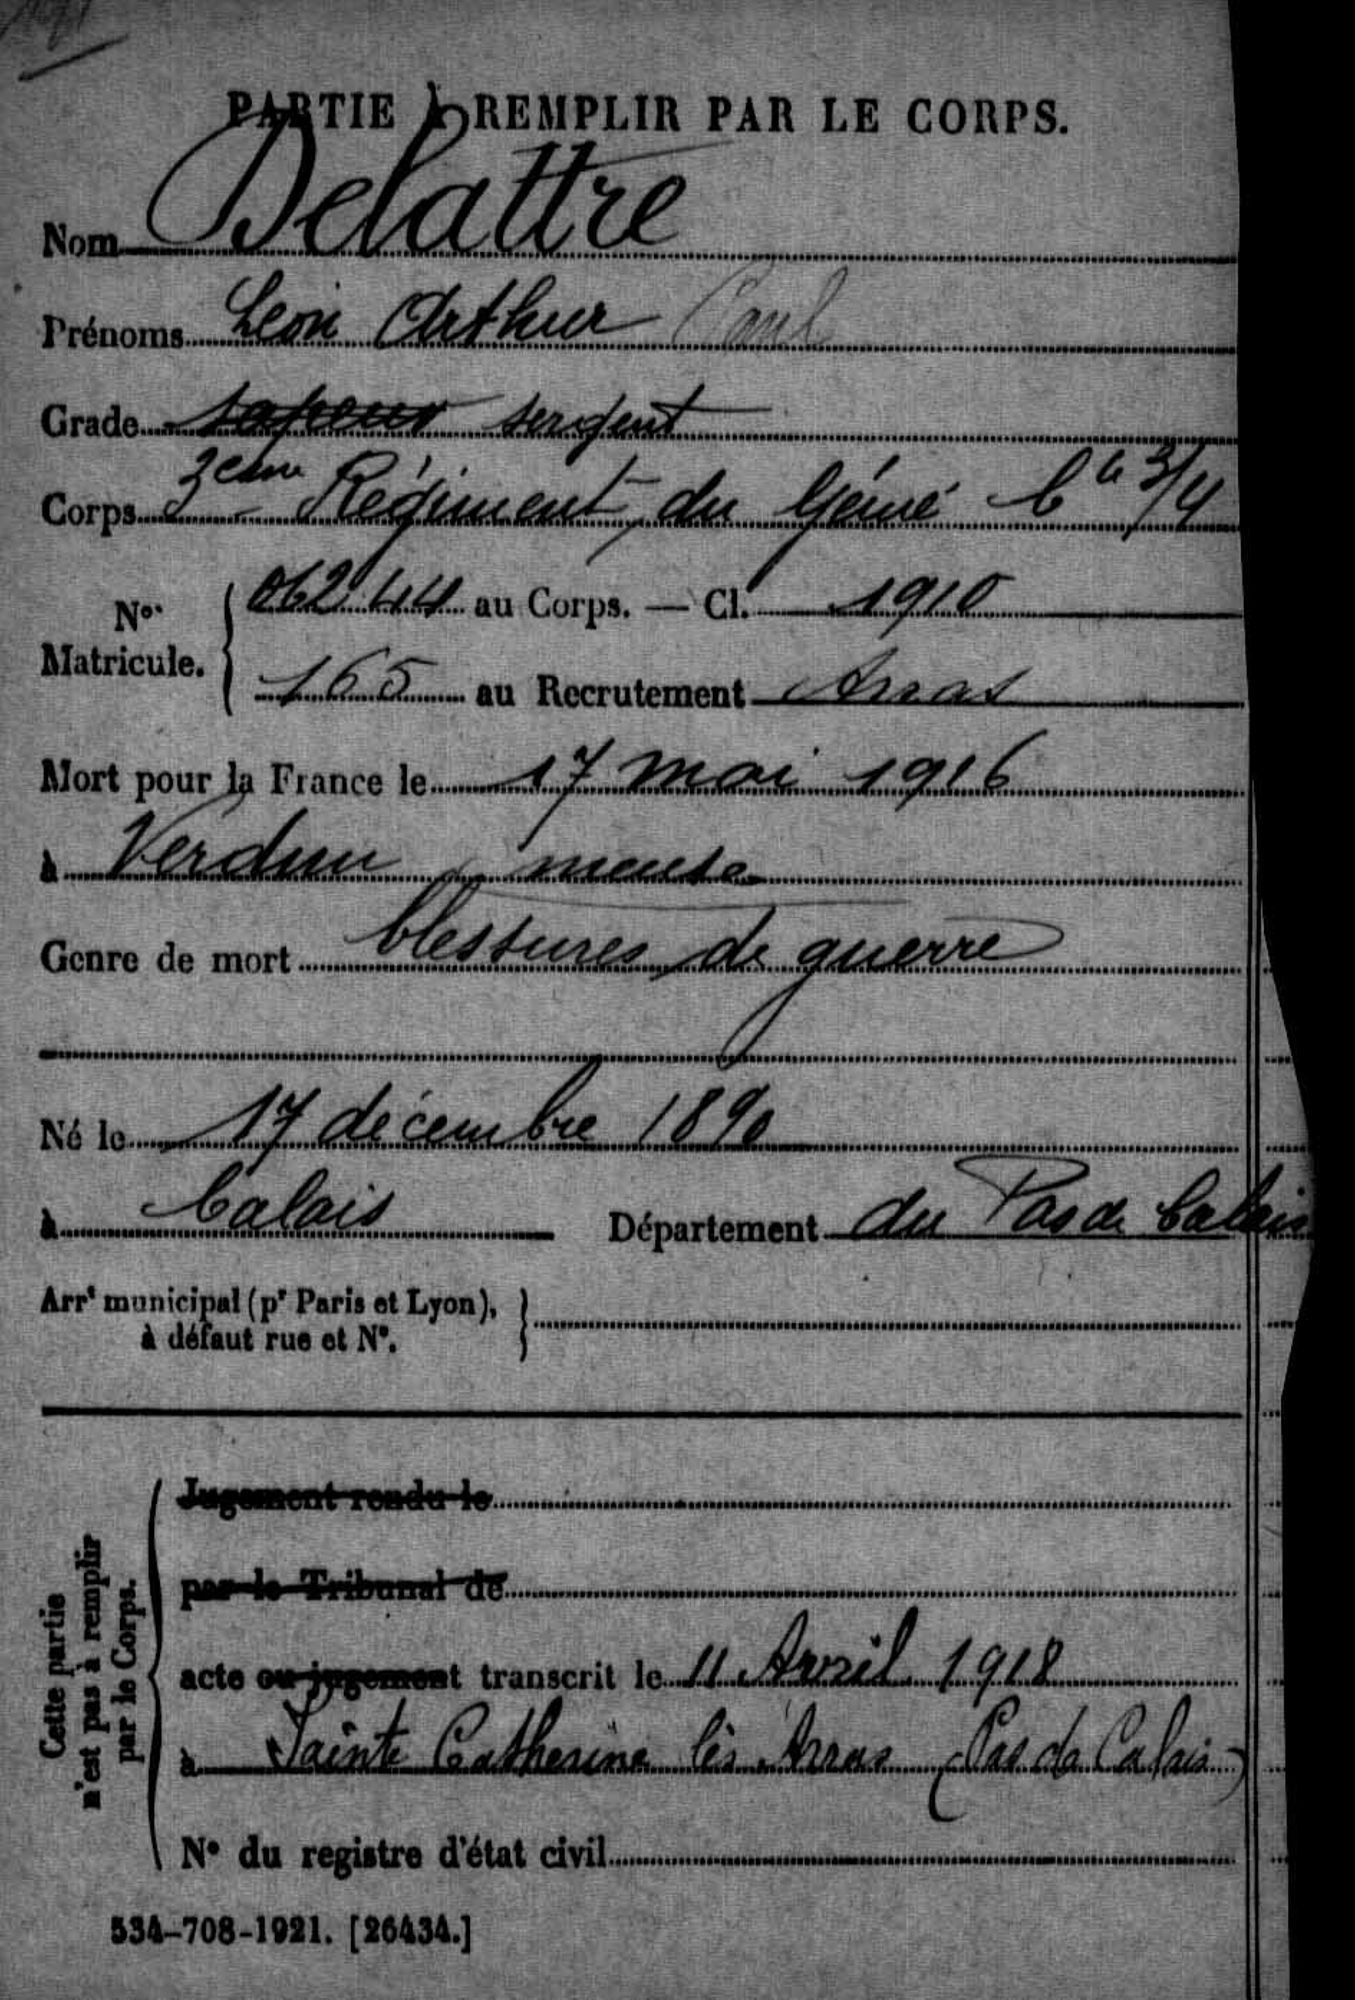 PARTIE À REMPLIR PAR LE CORPS.
Nom Delattre
Prénoms Léon Arthur Paul
Grade sapeur sergent
Corps 3eme Régiment du Génie Cie 3/4
Nos Matricule. { 06244 au Corps. — Cl. 1910
165 au Recrutement Arras
Mort pour la France le 17 mai 1916
à Verdun meuse
Genre de mort blessures de guerre
Né le 17 décembre 1890
à Calais Département du Pas de Calais
Arrt municipal (pr Paris et Lyon), à défaut rue et N°. }
Cette partie n'est pas à remplir par le Corps.
Jugement rendu le
par le Tribunal de
acte ou jugement transcrit le 11 Avril 1918
à Sainte Catherine lès Arras (Pas de Calais)
N° du registre d'état civil
534-708-1921. [26434.]